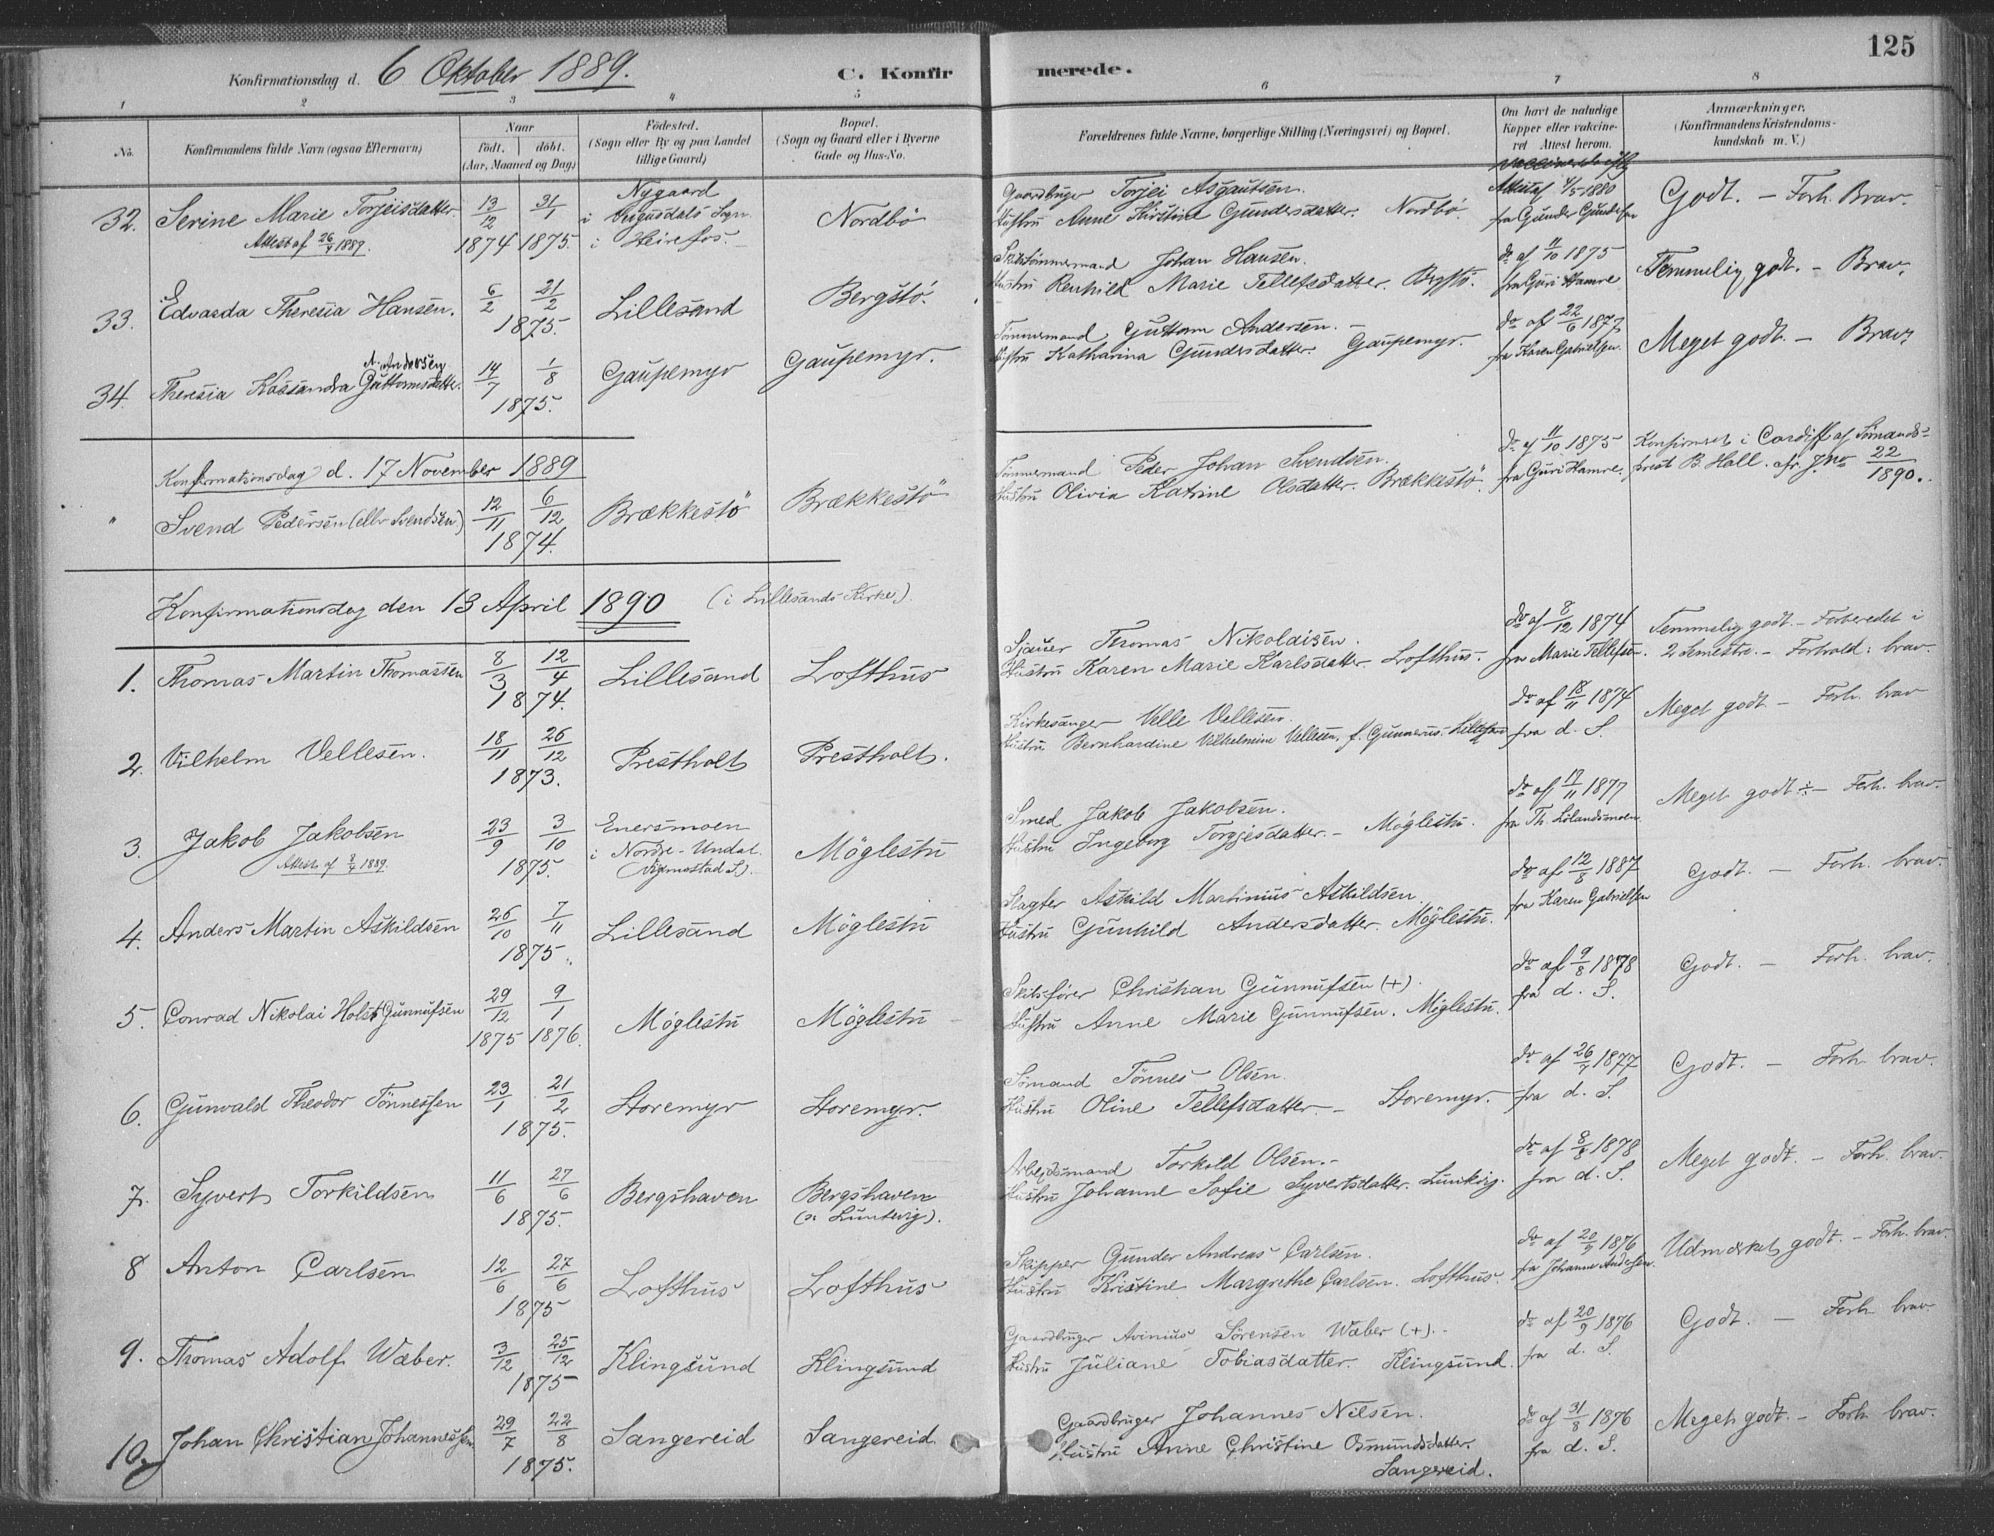 125
Konfirmationsdag d. 6 Oktober 1889.
C. Konfirmerede.
1 2 3 4 5 6 7 8
No.
Konfirmandens fulde Navn (ogsaa Efternavn)
Naar
födt. döbt.
(Aar, Maaned og Dag)
Födested.
(Sogn eller By og paa Landet
tillige Gaard)
Bopæl.
(Sogn og Gaard eller i Byerne
Gade og Hus-No.
Forældrenes fulde Navne, borgerlige Stilling (Næringsvei) og Bopæl.
Om havt de naturlige
Kopper eller vaccine-
ret. Attest herom.
Anmærkninger.
(Konfirmandens Kristendoms-
kundskab m. V.)
32. Serine Marie Torjeisdatter
Attest af 26/4 1889.
13/12 1874
31/1 1875.
Nygaard
i Sogn
i Heirefos.
Nordbö
Gaardbruger Torjei Asgautsen.
Hustru Anne Kirstine Gundersdatter. Nordbö.
Attest af 4/5 1880
fra Gunder Gundersen
Godt. – Forh. Brav.
33. Edvarda Theresia Hansen.
6/2 21/2
1875.
Lillesand
Bergstö.
Skibstömmermand Johan Hansen.
Hustru Renhild Marie Tellefsdatter. Bergstö.
do af 11/10 1875
fra Guri Hamre
Temmelig godt. – Brav.
34. Theresia Kassandra Guttormsdatter.
Andersen
14/7 1/8
1875.
Gaupemyr
Gaupemyr.
Tömmermand Guttorm Andersen. –
Hustru Katharina Gundersdatter. Gaupemyr.
do af 22/6 1877
fra Karen Gabrielsen.
Meget godt. – Brav.
Konfirmationsdag d. 17 November 1889
" Svend Pedersen (ell. Svendsen)
12/11 6/12
1874.
Brækkestö
Brækkestö
Tömmermand Peder Johan Svendsen.
Hustru Olivia Katrine Olsdatter. Brækkestö.
do af 11/10 1875
fra Guri Hamre.
Konfirmeret i Cardiff af Sömands-
prest B. Hall. cfr. Jno 22/1890.
Konfirmationsdag den 13 April 1890 (i Lillesands Kirke).
1. Thomas Martin Thomassen
8/3 12/4
1874.
Lillesand
Lofthus
Sjauer Thomas Nikolaisen.
Hustru Karen Marie Karlsdatter. Lofthus.
do af 8/12 1874
fra Marie Tellefsen.
Temmelig godt. – Forberedet i
2 Semestre. – Forhold: brav.
2. Vilhelm Vellesen.
18/11 26/12
1873.
Prestholt
Prestholt.
Kirkesanger Velle Vellesen.
Hustru Bernhardine Vilhelmine Vellesen, f. Gunnerus. Lillesand
do af 18/11 1874
fra d. S.
Meget godt – Forh. brav
3. Jakob Jakobsen
Attest af 8/4 1889.
23/9 3/10
1875.
Enersmoen
i Nordre-Undal.
(Vigmostad S.).
Möglestu
Smed Jakob Jakobsen.
Hustru Ingeborg Torgjesdatter. – Möglestu.
do af 17/11 1877
fra Th. Lölandsmoen
Meget godt ÷ – Forh. brav.
4. Anders Martin Askildsen
26/10 7/11
1875.
Lillesand
Möglestu
Slagter Askild Martinius Askildsen.
Hustru Gunhild Andersdatter. Möglestu.
do af 12/8 1887
fra Karen Gabrielsen
Godt. – Forh. brav.
5. Conrad Nikolai Holst Gunnufsen
29/12 1875
9/1 1876.
Möglestu
Möglestu
Skibsförer Christian Gunnufsen (+).
Hustru Anne Marie Gunnufsen. Möglestu.
do af 9/8 1878
fra d. S.
Godt. – Forh. brav.
6. Gunvald Theodor Tönnessen
23/1 21/2
1875.
Storemyr
Storemyr.
Sömand Tönnes Olsen.
Hustru Oline Tellefsdatter – Storemyr.
do af 26/7 1877
fra d. S.
Godt. – Forh. brav.
7. Syvert Torkildsen
11/6 27/6
1875.
Bergshaven
Bergshaven
(v. Luntevig).
Arbeidsmand Torkild Olsen. –
Hustru Johanne Sofie Syvertsdatter. Luntevig.
do af 8/8 1878
fra d. S.
Meget godt. – Forh. brav.
8 Anton Carlsen
12/6 27/6
1875
Lofthus
Lofthus
Skipper Gunder Andreas Carlsen.
Hustru Kristine Margrethe Carlsen. Lofthus.
do af 20/9 1876
fra Johanne Andersen.
Udmerket godt. – Forh. brav.
9. Thomas Adolf Wæber.
3/12 25/12
1875
Klingsund
Klingsund
Gaardbruger Avinius Sörensen Wæber (+). –
Hustru Juliane Tobiasdatter. Klingsund.
do af 20/9 1876
fra d. S.
Godt. – Forh. brav
10. Johan Christian Johannessen
29/7 22/8
1875.
Sangereid
Sangereid.
Gaardbruger Johannes Nilsen.
Hustru Anne Christine Osmundsdatter.
Sangereid.
do af 31/8 1876
fra d. S.
Meget godt. – Forh. brav.